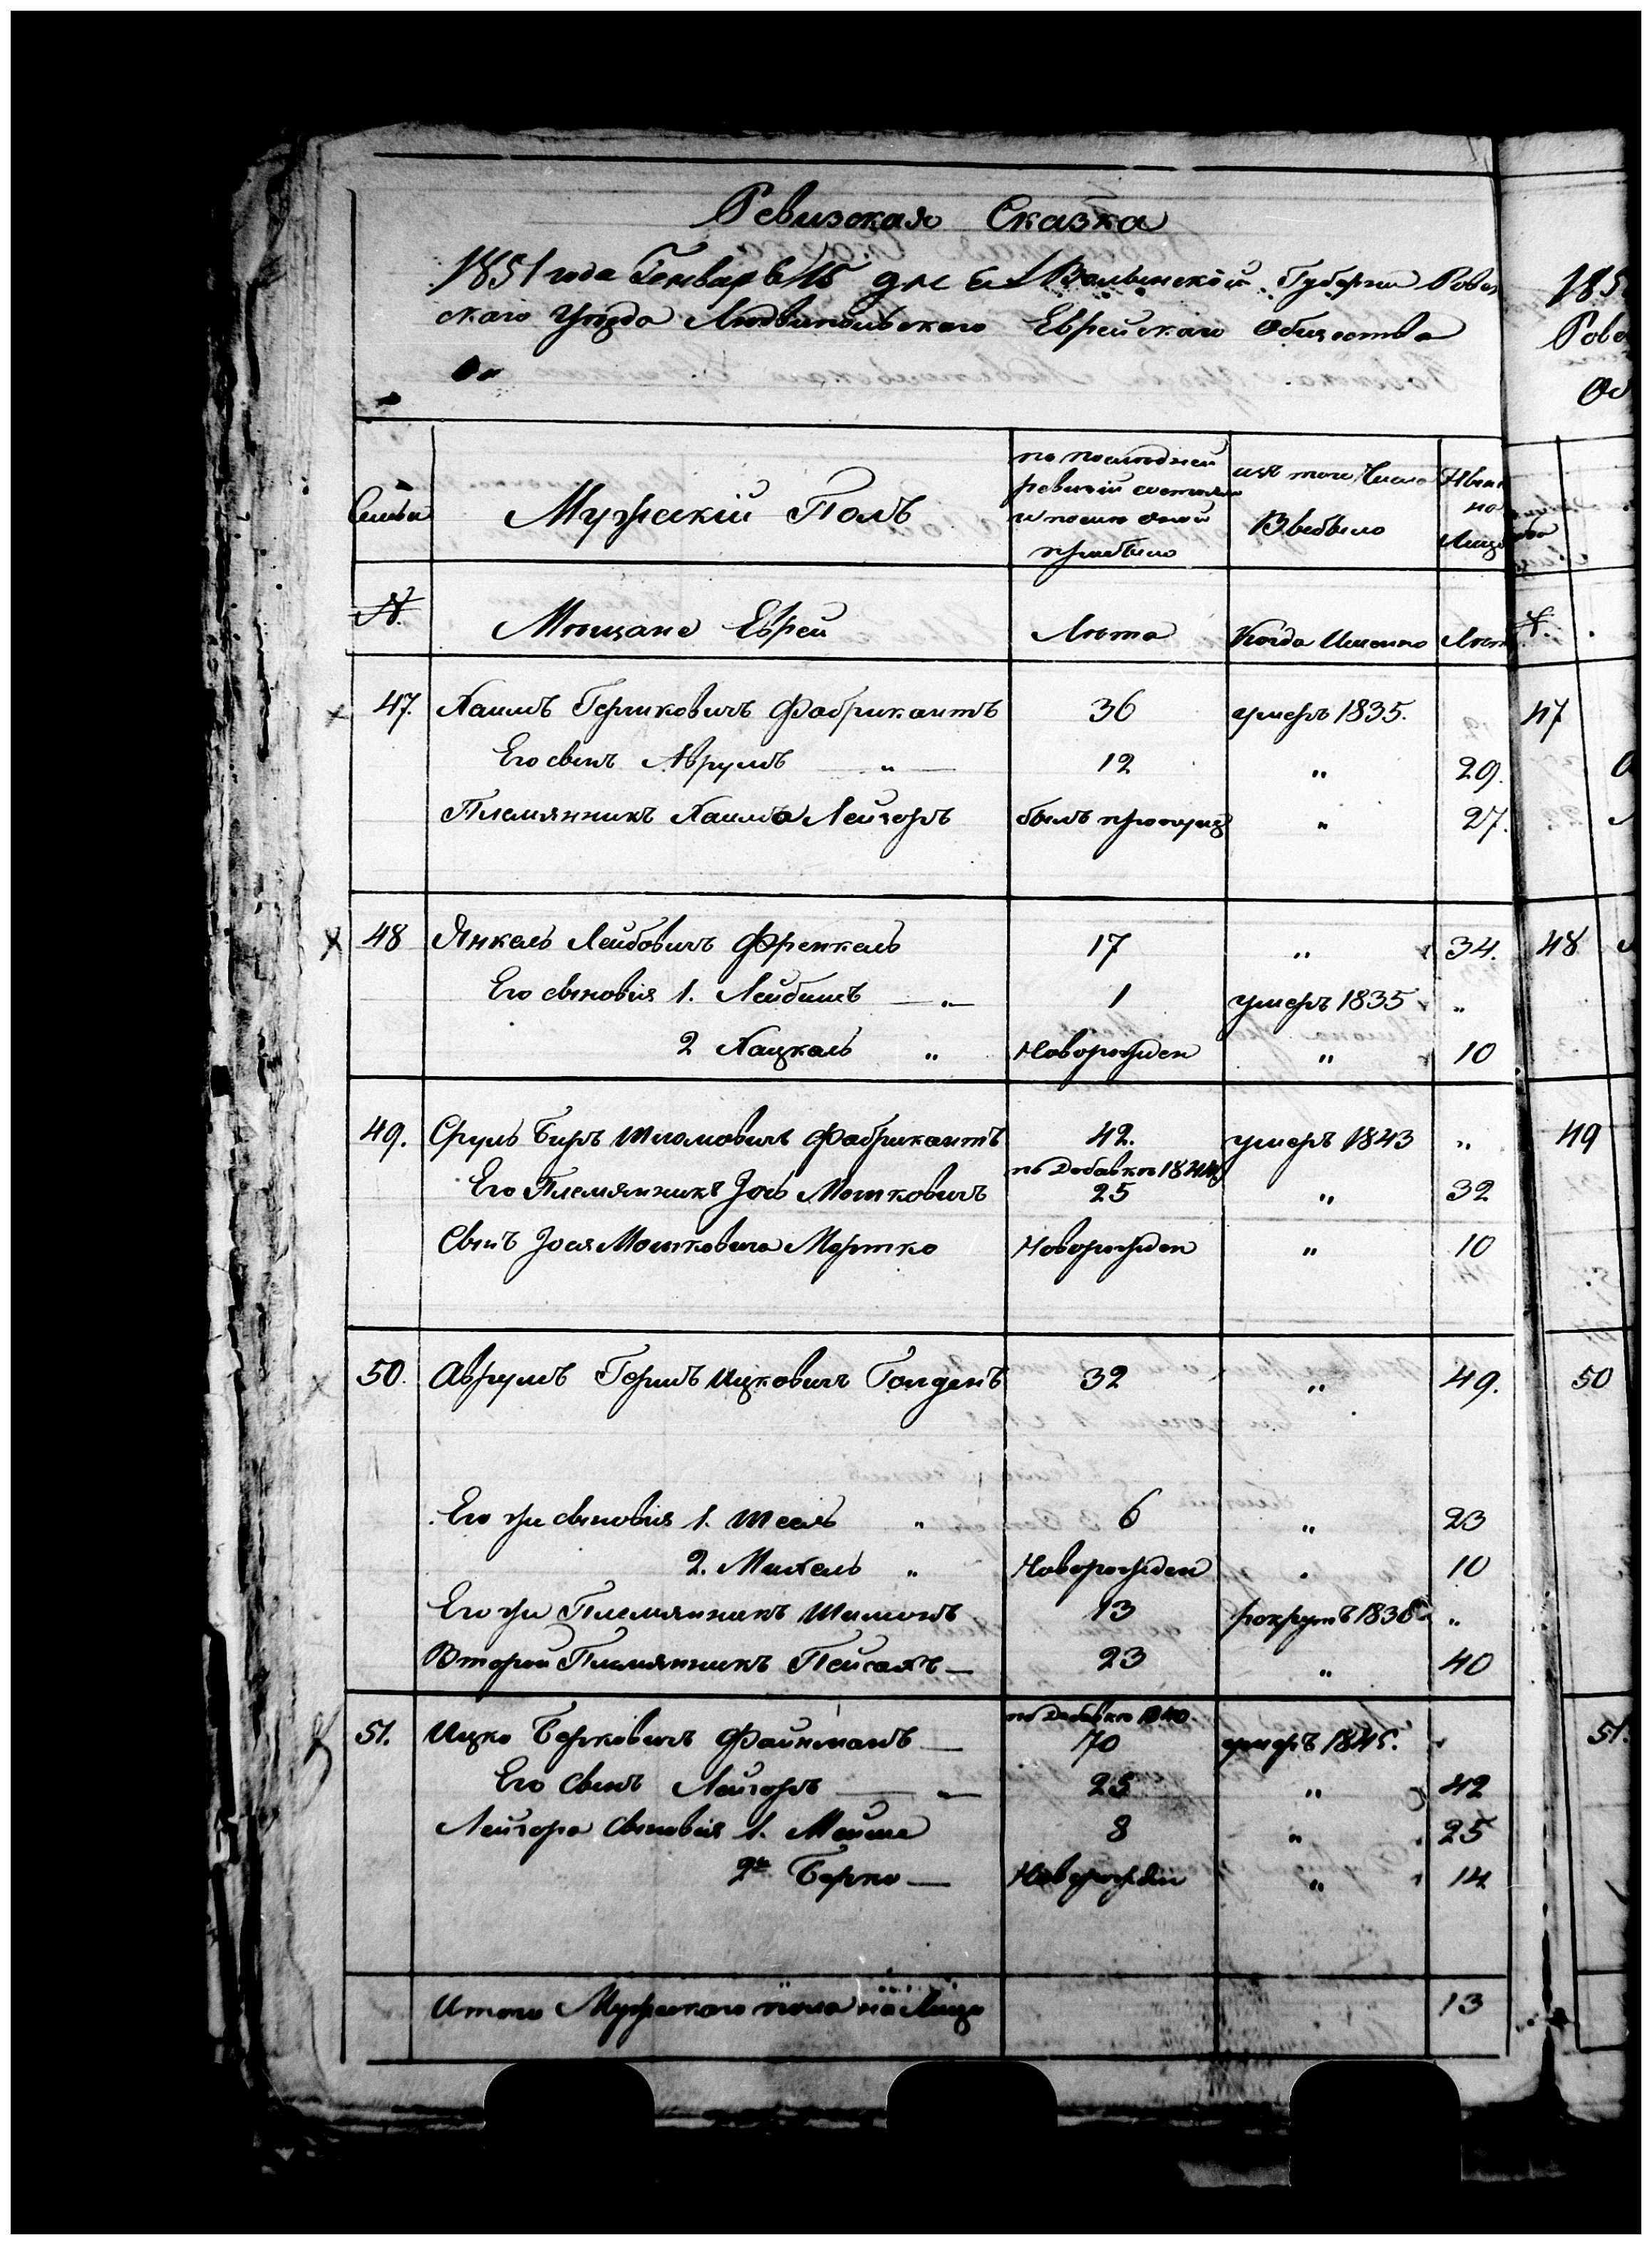 Ревизская Сказка
1851 года Генваря 15 дня Волынской Губернии Ровен
скаго Уѣзда Людвипольскаго Еврейскаго Общества
Семьи
Мужескій Полъ
по последней
ревизіи состояло
и после оной
прибыло
изъ того Числа
Выбыло
Ныне
на
Лицо
№.
Мѣщане Евреи
Лѣта
Когда Именно
Лѣта
47. Хаимъ Гершковичъ Фабрикантъ 36 умеръ 1835.
Его сынъ Аврумъ — „ — 12 „ 29.
Племянникъ Хаима Лейзоръ былъ пропущ „ 27.
48 Янкель Лейбовичъ Френкель 17 „ 34.
Его сыновья 1. Лейбишъ — „ — 1 умеръ 1835 „
2 Хацкель „ Новорожден „ 10
49. Сруль Беръ Шломовичъ Фабрикантъ 42. умеръ 1843 „
по Добавке 1844
Его Племянникъ Іось Мошковичъ 25 „ 32
Сынъ Іося Мошковича Мортко Новорожден „ 10
50. Аврумъ Гершъ Ицковичъ Голденъ 32 „ 49.
Его же сыновья 1. „ 6 „ 23
2. Михель „ Новорожден „ 10
Его же Племянникъ Шимонъ 13 рекрутъ 1838 „
Второй Племянникъ Пейсахъ — 23 „ 40
по Добавке 1840.
51. Ицко Берковичъ Файнманъ — 70 умеръ 1845. „
Его Сынъ Лейзоръ — „ — 25 „ 42
Лейзора Сыновья 1. Мойше 8 „ 25
2й Берко — Новорожден „ 14
Итого Мужескаго пола на Лицо 13
185
Рове
Об
47
48
49
50
51.